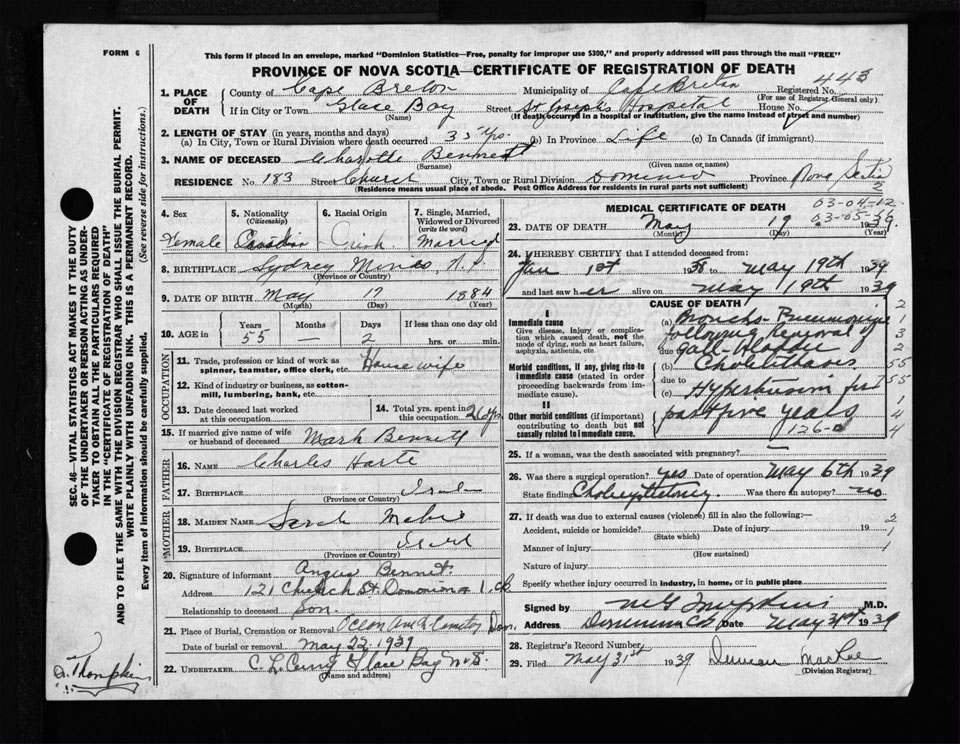 FORM 6
This form if placed in an envelope, marked "Dominion Statistics—Free, penalty for improper use $300," and properly addressed will pass through the mail "FREE"
PROVINCE OF NOVA SCOTIA—CERTIFICATE OF REGISTRATION OF DEATH
443
1. PLACE OF DEATH
County of Cape Breton Municipality of Cape Breton Registered No.
(For use of Registrar General only)
If in City or Town Glace Bay Street St Josephs Hospital House No.
(Name) (If death occurred in a hospital or institution, give the name instead of street and number)
2. LENGTH OF STAY (in years, months and days)
(a) In City, Town or Rural Division where death occurred 35 yrs. (b) In Province Life (c) In Canada (if immigrant)
3. NAME OF DECEASED Charlotte Bennett
(Surname) (Given name or names)
RESIDENCE No. 183 Street Church City, Town or Rural Division Dominion Province Nova Scotia
(Residence means usual place of abode. Post Office Address for residents in rural parts not sufficient)
2
03-04-12
03-05-36
4. Sex 5. Nationality (Citizenship) 6. Racial Origin 7. Single, Married, Widowed or Divorced (write the word)
Female Canadian Irish Married
8. BIRTHPLACE Sydney Mines, N.S.
(Province or Country)
9. DATE OF BIRTH May 17 1884
(Month) (Day) (Year)
10. AGE in Years Months Days If less than one day old
55 — 2 hrs. or min.
OCCUPATION
11. Trade, profession or kind of work as spinner, teamster, office clerk, etc. House wife
12. Kind of industry or business, as cotton-mill, lumbering, bank, etc.
13. Date deceased last worked at this occupation
14. Total yrs. spent in this occupation
15. If married give name of wife or husband of deceased Mark Bennett
FATHER
16. NAME Charles Harte
17. BIRTHPLACE
(Province or Country)
MOTHER
18. MAIDEN NAME Sarah
19. BIRTHPLACE
(Province or Country)
20. Signature of informant Angus Bennet
Address 121 Church St. Dominion
Relationship to deceased Son.
21. Place of Burial, Cremation or Removal Ocean Cemetery Dom.
Date of burial or removal May 22, 1939
22. UNDERTAKER Glace Bay N.S.
(Name and address)
MEDICAL CERTIFICATE OF DEATH
23. DATE OF DEATH May 19 19
(Month) (Day) (Year)
24. I HEREBY CERTIFY that I attended deceased from:
Jan 1st 1938 to May 19th 1939
and last saw her alive on May 19th 1939
CAUSE OF DEATH
I
Immediate cause
Give disease, injury or complication which caused death, not the mode of dying, such as heart failure, asphyxia, asthenia, etc.
(a) Broncho-Pneumonia
following removal of
due Gall-Bladder
Morbid conditions, if any, giving rise to immediate cause (stated in order proceeding backwards from immediate cause).
(b) Cholelithiasis
due to
(c) Hypertension for
past five years
126-
II
Other morbid conditions (if important) contributing to death but not causally related to immediate cause.
2
1
3
2
55
55
1
4
4
25. If a woman, was the death associated with pregnancy?
26. Was there a surgical operation? yes Date of operation May 6th 1939
State finding Was there an autopsy? no
27. If death was due to external causes (violence) fill in also the following:
Accident, suicide or homicide? Date of injury 19
(State which)
Manner of injury
(How sustained)
Nature of injury
Specify whether injury occurred in industry, in home, or in public place
2
1
1
Signed by M.D.
Address Dominion C.B. Date May 1939
28. Registrar's Record Number
29. Filed May 31st 1939 Duncan MacRae
(Division Registrar)
SEC. 46—VITAL STATISTICS ACT MAKES IT THE DUTY OF THE UNDERTAKER OR PERSON ACTING AS UNDERTAKER TO OBTAIN ALL THE PARTICULARS REQUIRED IN THE "CERTIFICATE OF REGISTRATION OF DEATH"
AND TO FILE THE SAME WITH THE DIVISION REGISTRAR WHO SHALL ISSUE THE BURIAL PERMIT.
WRITE PLAINLY WITH UNFADING INK. THIS IS A PERMANENT RECORD.
Every item of information should be carefully supplied. (See reverse side for instructions.)
Dr. Thompkins